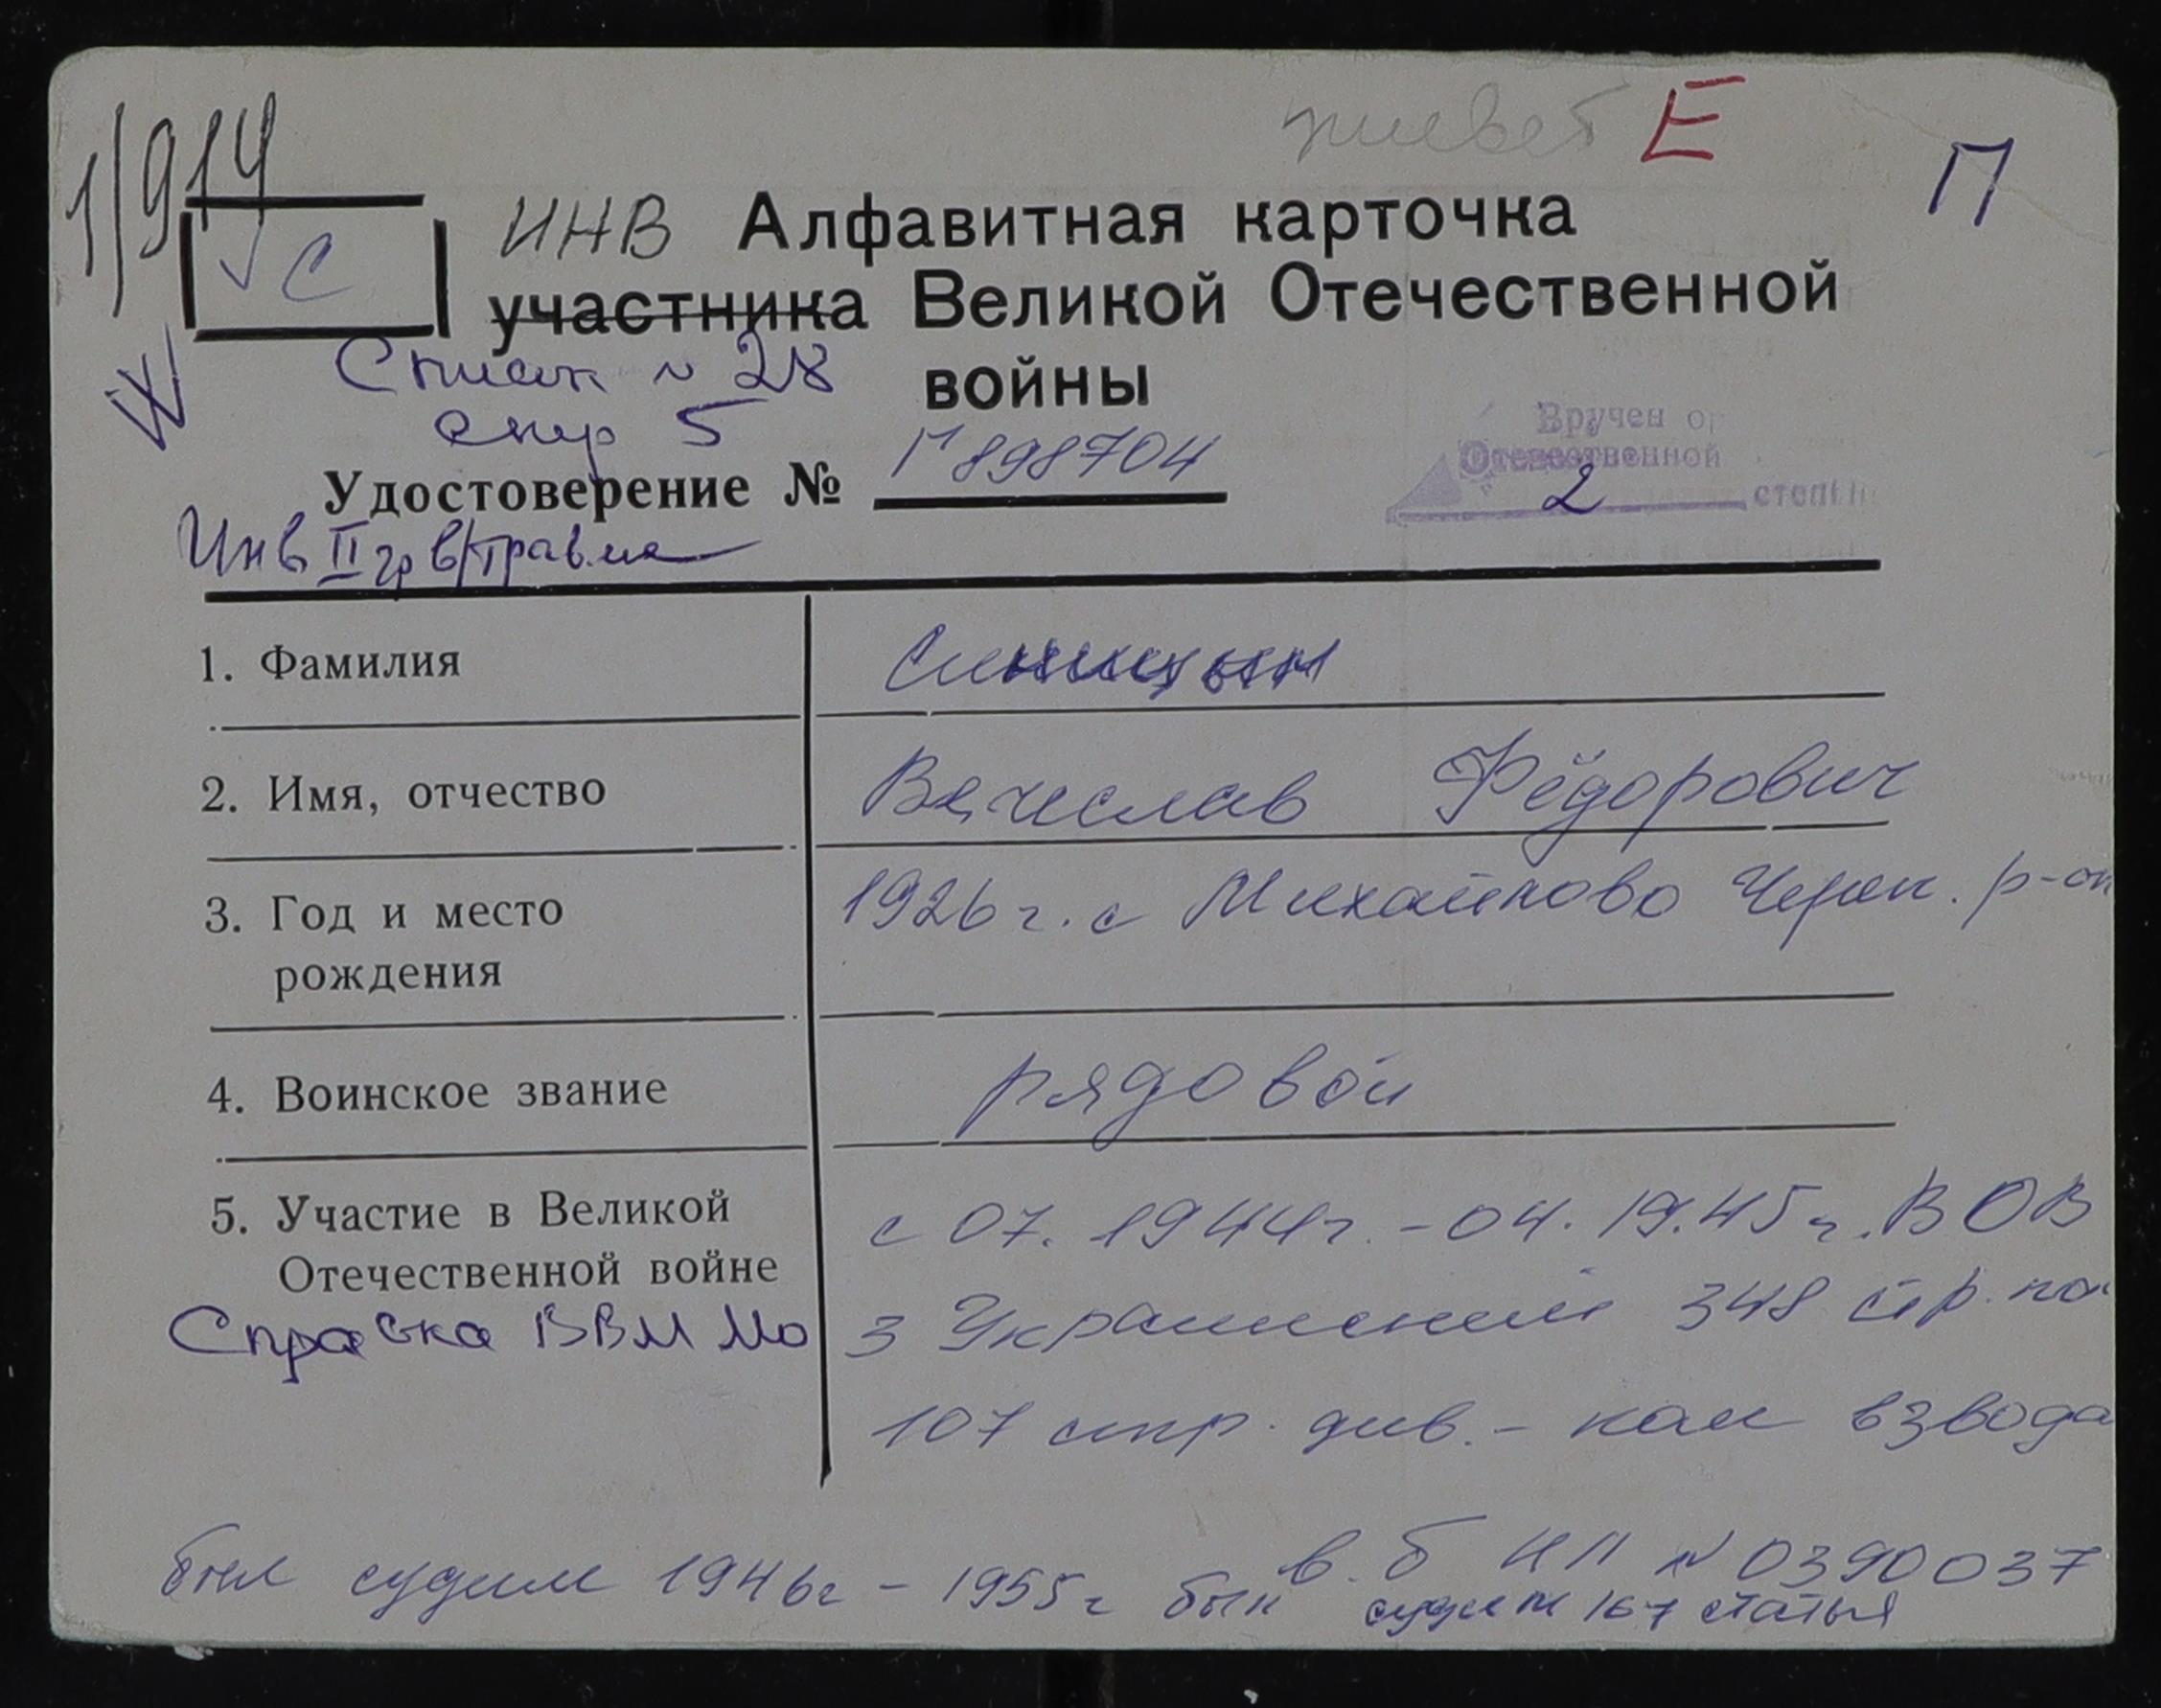 живет Е
П
1/914
√ С
ИНВ Алфавитная карточка
участника Великой Отечественной
войны
Список № 28
стр 5
Удостоверение № Г 898704
Вручен ор
Отечественной
2 степени
Инв II гр в/травма
1. Фамилия Синицын
2. Имя, отчество Вячеслав Фёдорович
3. Год и место рождения 1926 г. с Михайлово Череп. р-он
4. Воинское звание рядовой
5. Участие в Великой с 07. 1944г. - 04. 19.45 г. ВОВ
Отечественной войне 3 Украинский 348 стр. по
Справка ВВМ Мо
107 стр. див. - ком взвода
был судим 1946г - 1955г был в. б НП № 0390037
судим 167 статья